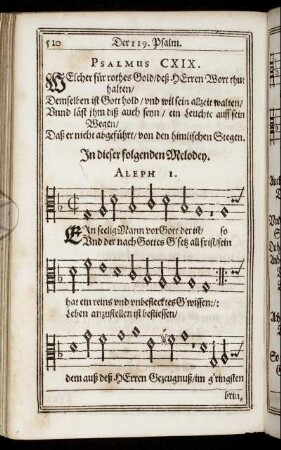 520 Der 119. Psalm.
PSALMUS CXIX.
WElcher für rothes Gold/ deß HErren Wort thu
halten/
Demselben ist Gott hold/ vnd wil sein allzeit walten/
Vnnd läst jhm diß auch seyn/ ein Leuchte auff sein
Wegen/
Daß er nicht abgeführt/ von den himlischen Stegen.
In dieser folgenden Melodey.
ALEPH 1.
EIn seelig Mann vor Gott der ist/ so
Vnd der nach Gottes G'setz all frist/ sein
hat ein reins vnd vnbeflecktes G'wissen:/:
Leben anzustellen ist beflissen/
dem auß deß HErren Gezeugnuß/ im g'ringsten